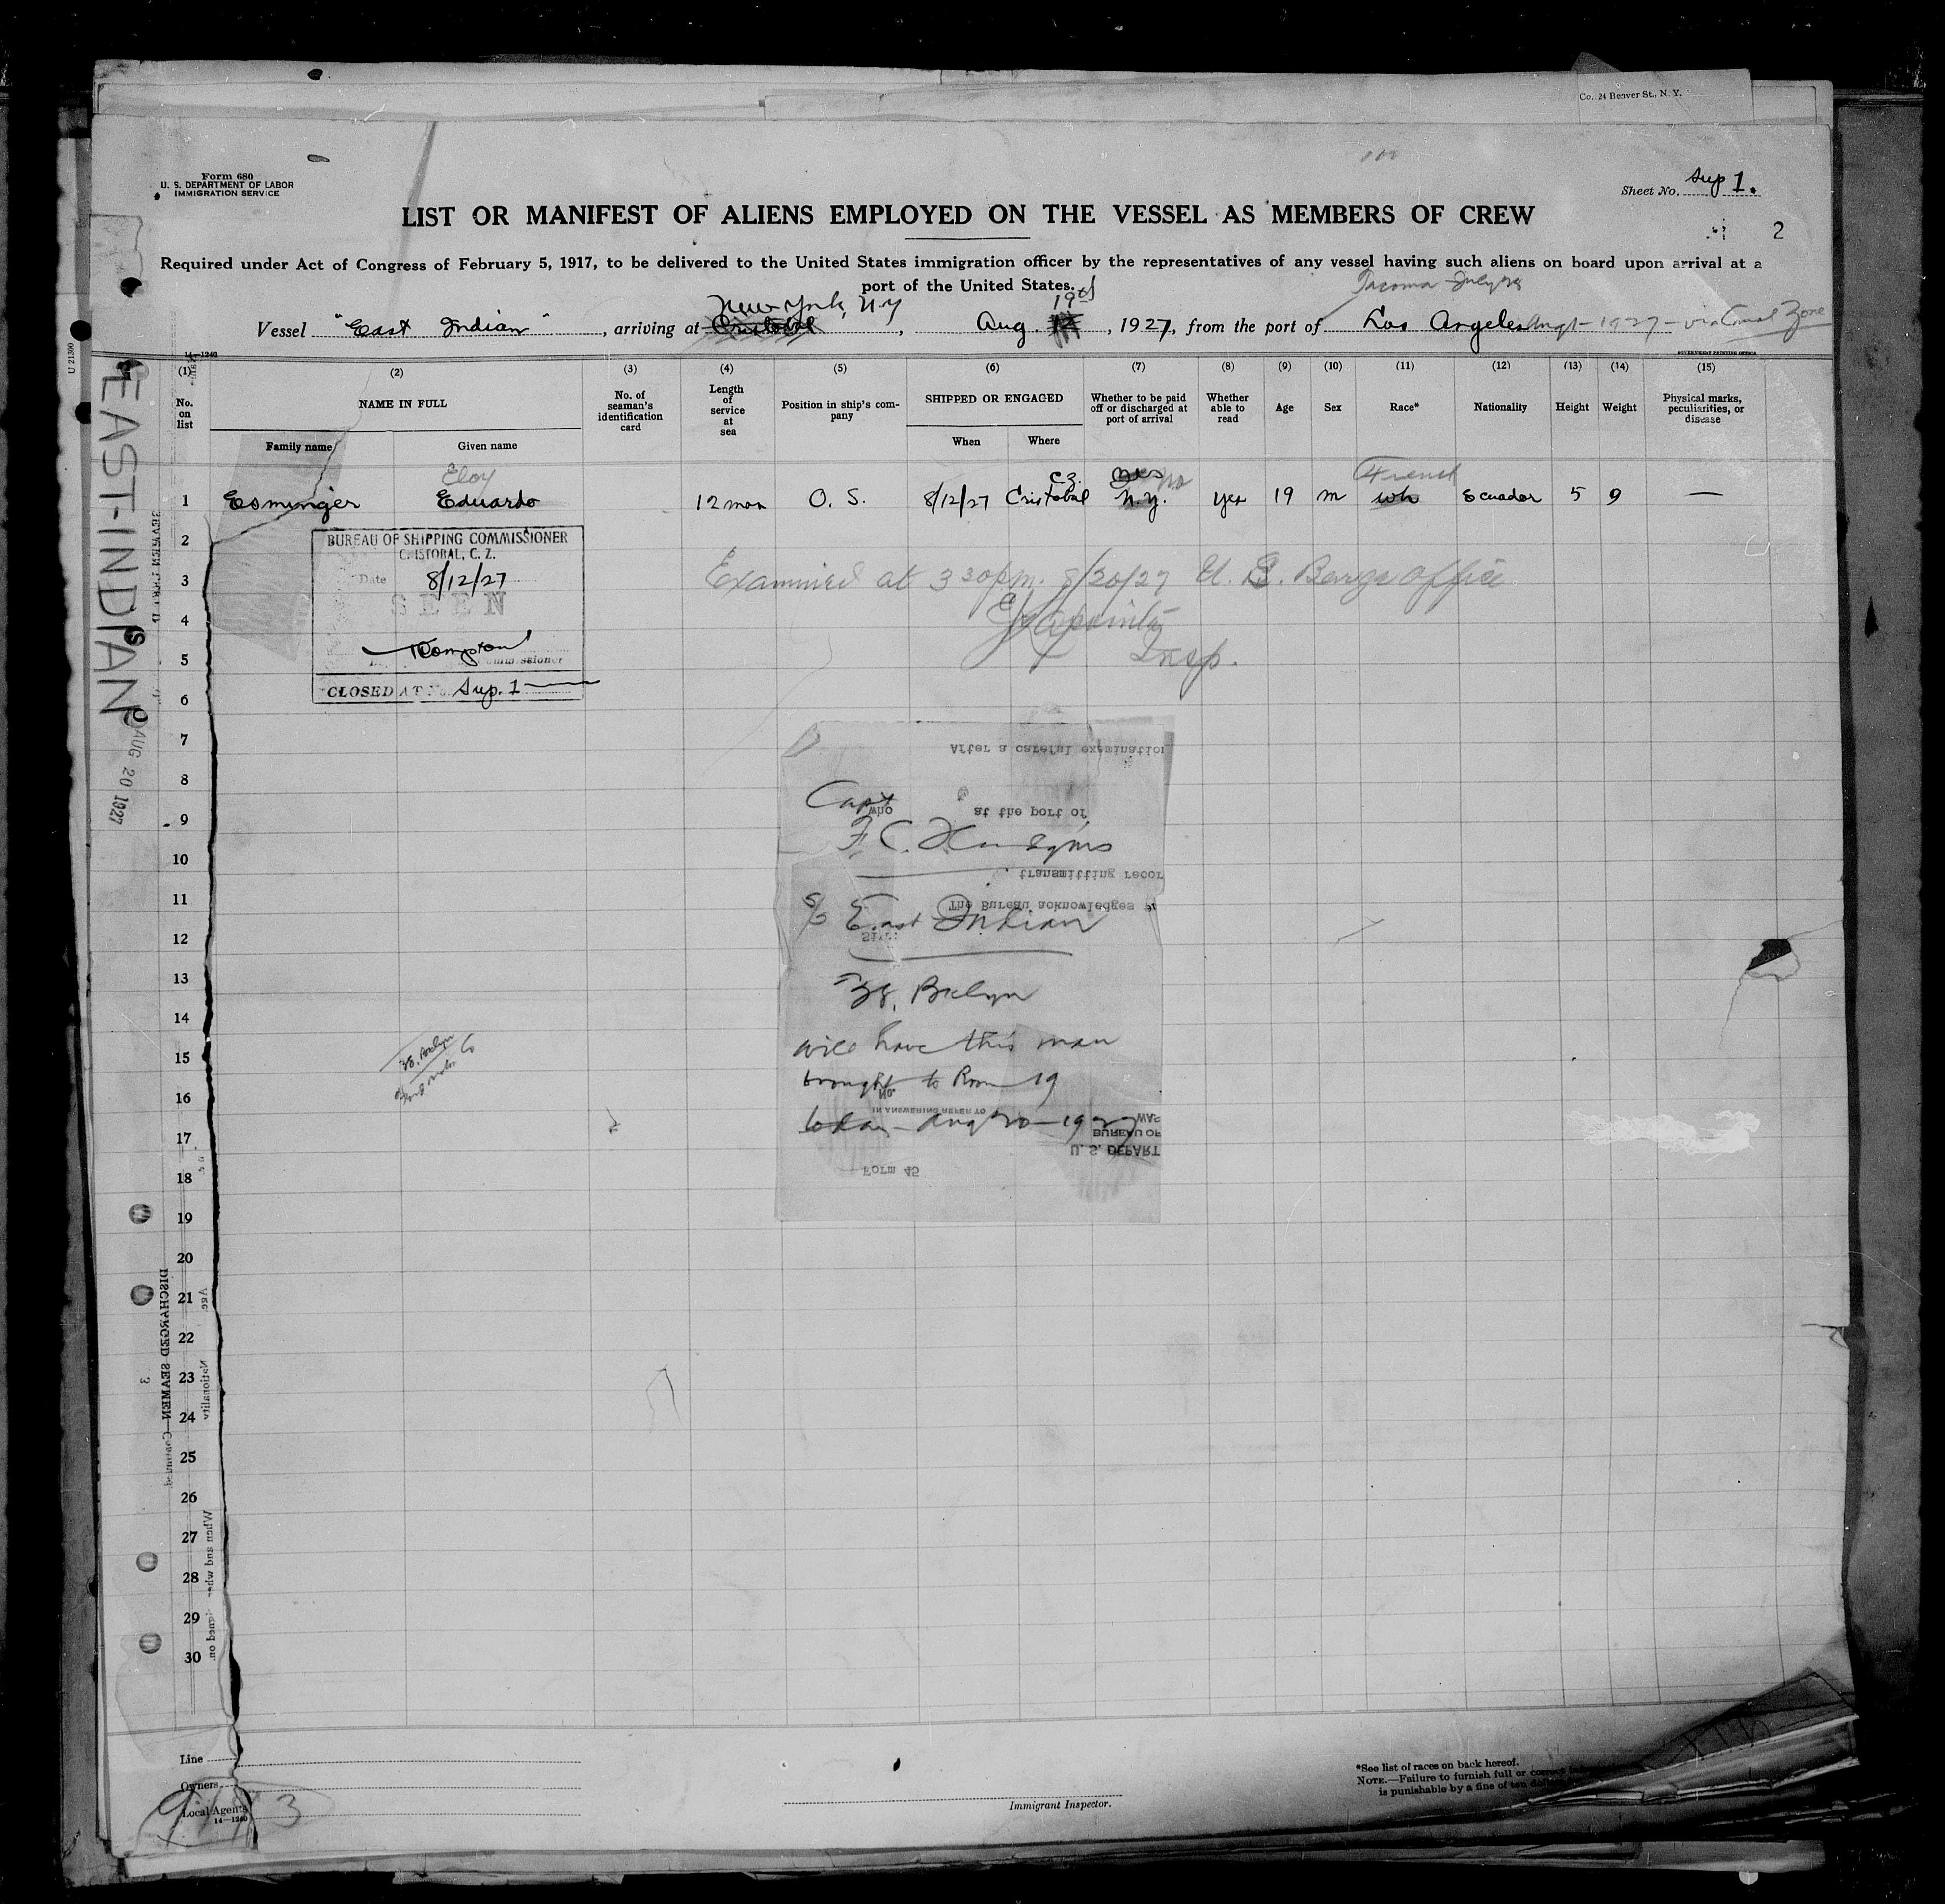 Co., 24 Beaver St., N. Y.
Form 680
U. S. DEPARTMENT OF LABOR
IMMIGRATION SERVICE
Sheet No. Sup 1.
LIST OR MANIFEST OF ALIENS EMPLOYED ON THE VESSEL AS MEMBERS OF CREW
2
Required under Act of Congress of February 5, 1917, to be delivered to the United States immigration officer by the representatives of any vessel having such aliens on board upon arrival at a
port of the United States.
Tacoma July 28
New York, N.Y 19th
Vessel "East Indian", arriving at Cristobal, Aug. 12, 1927, from the port of Los Angeles Aug 1 - 1927 - via Canal Zone
14-1240
GOVERNMENT PRINTING OFFICE
(1) (2) (3) (4) (5) (6) (7) (8) (9) (10) (11) (12) (13) (14) (15)
No. on list
NAME IN FULL
Family name
Given name
No. of seaman's identification card
Length of service at sea
Position in ship's company
SHIPPED OR ENGAGED
When
Where
Whether to be paid off or discharged at port of arrival
Whether able to read
Age
Sex
Race*
Nationality
Height
Weight
Physical marks, peculiarities, or disease
Eloy C.Z. No French
1 Esminger Eduardo 12 mon O. S. 8/12/27 Cristobal N.Y. Yes 19 m wh Ecuador 5 9 —
2
3
4
5
6
7
8
9
10
11
12
13
14
15
16
17
18
19
20
21
22
23
24
25
26
27
28
29
30
BUREAU OF SHIPPING COMMISSIONER
CRISTOBAL, C. Z.
Date 8/12/27
SEEN
Compton
Commissioner
CLOSED AT No. Sup. 1
Examined at 3 30 p.m. 8/20/27 U. S. Barge Office
Insp.
EAST-INDIAN
AUG 20 1927
U 21300
After a careful examination
Capt
who at the port of
F. C.
transmitting recor
The Bureau acknowledges
S/S East Indian
Sir:
Bklyn
will have this man
brought to Room 19
No.
IN ANSWERING REFER TO
today - Aug 20 - 1927
WAS
BUREAU OF
U. S. DEPART
Form 45
DISCHARGED SEAMEN—Continued
3
Age
Nationality
When and whe
Line
Owners
Local Agents
14-1240
Immigrant Inspector.
*See list of races on back hereof.
NOTE.—Failure to furnish full or correct
is punishable by a fine of ten dollars